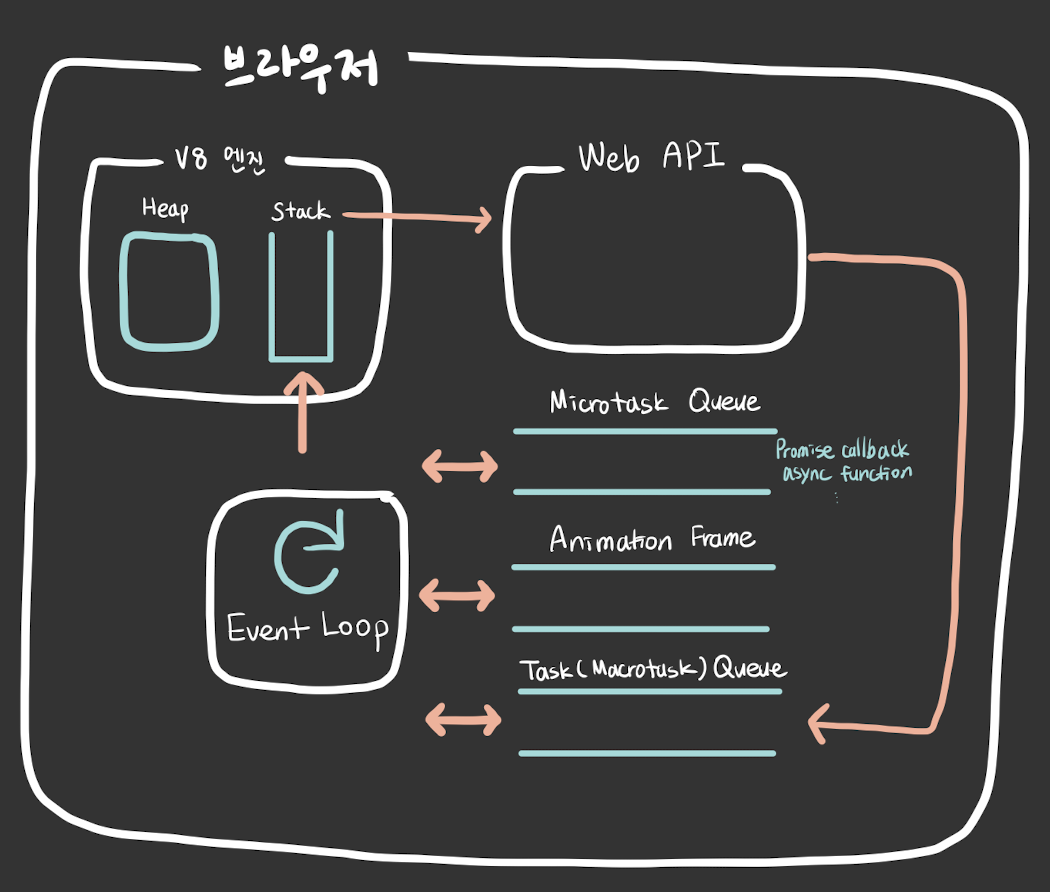 브라우저
V8 엔진
Heap
Stack
Web API
Microtask Queue
Promise callback
async function
⋮
Animation Frame
Event Loop
Task(Macrotask) Queue